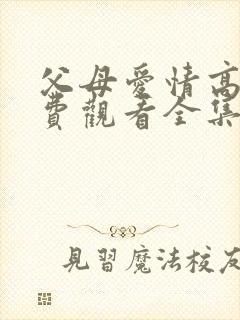 父母愛情高
費觀看全集
見習魔法校友